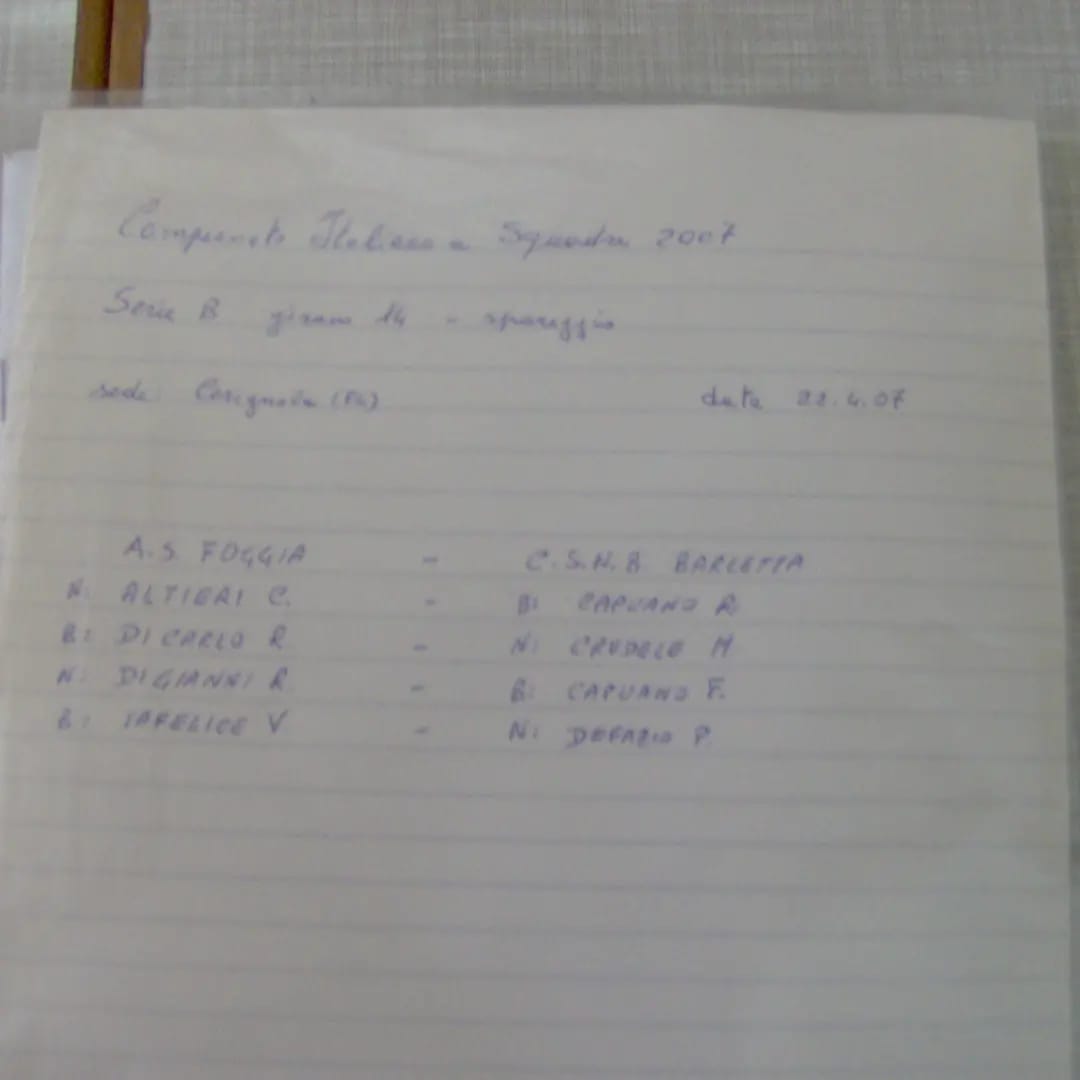 Campionato Italiano a Squadre 2007
Serie B girone 14 - spareggio
sede: Cerignola (FG) data 22.4.07
A.S. FOGGIA - C.S.N.B. BARLETTA
N: ALTIERI C. - B: CAPUANO R.
B: DI CARLO R - N: CRUDELE M
N: DI GIANNI R - B: CAPUANO F.
B: IAFELICE V - N: DEFAZIO P.